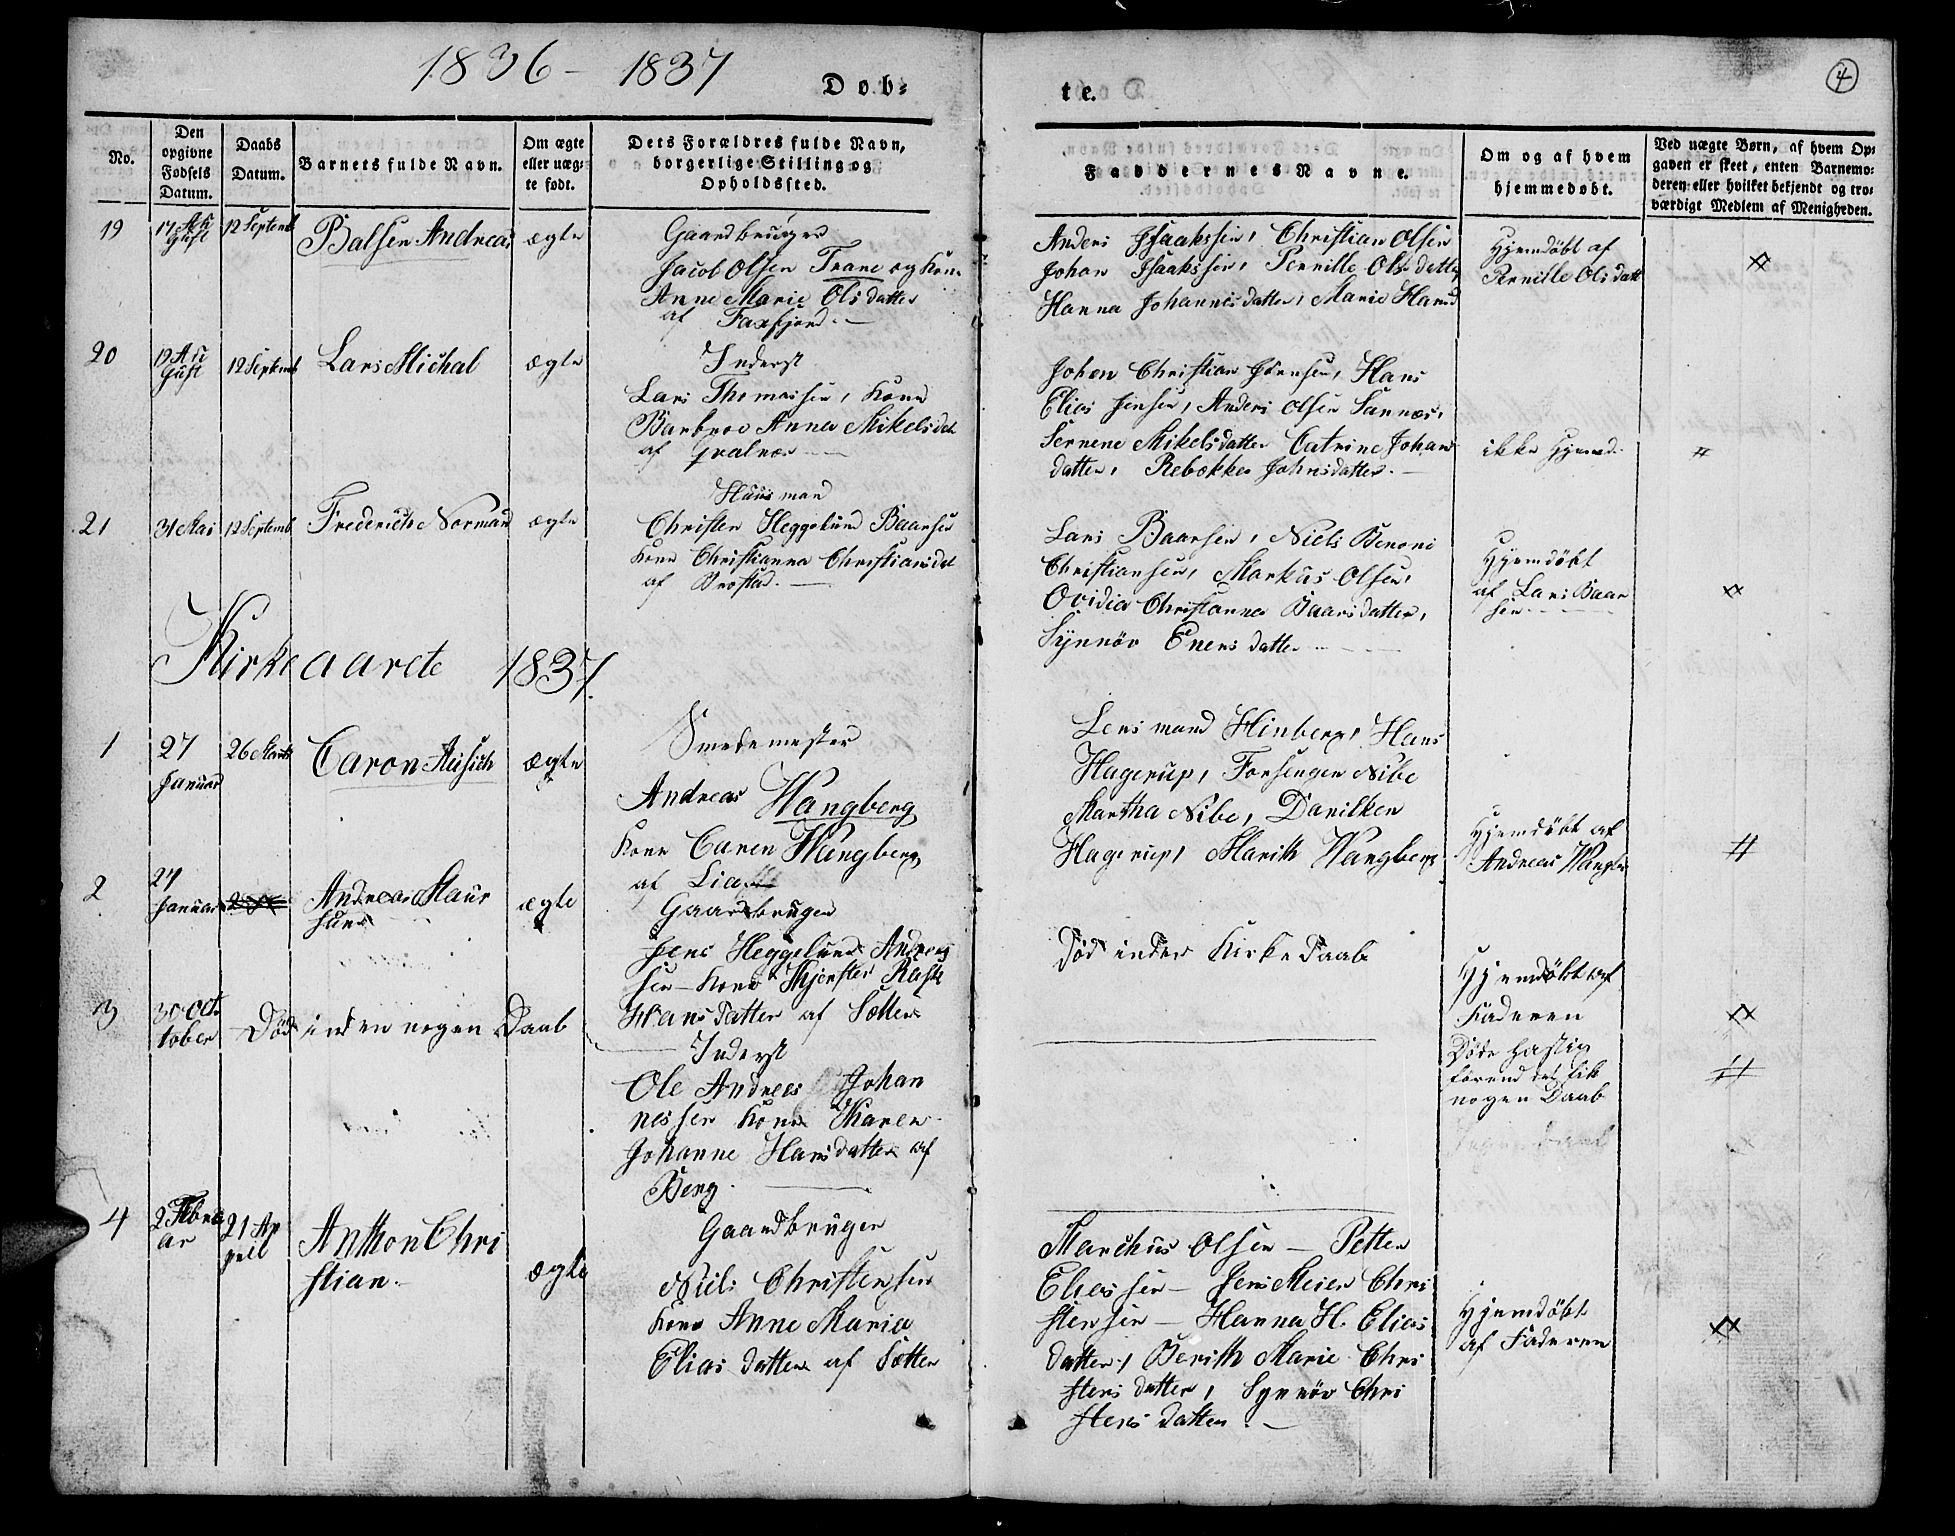 1836 - 1837
Døb=
te.
4
No.
Den
opgivne
Fødsels
Datum.
Daabs
Datum.
Barnets fulde Navn.
Om ægte
eller uæg=
te født.
Dets Forældres fulde Navn,
borgerlige Stilling og
Opholdssted.
Faddernes Navne.
Om og af hvem
hjemmedøbt.
Ved uægte Børn, af hvem Op=
gaven er skeet, enten Barnemo=
deren eller hvilket bekjendt og tro=
værdigt Medlem af Menigheden.
19
17 Au
gust
12 Septemb
Balser Andreas
ægte
Gaardbruger
Jacob Olsen Trane og Kone
Anne Marie Olsdatter
af Faxfjord. -
Anders Isaakssen, Christian Olsen
Johan Isaakssen, Pernille Olsdatter
Hanna Johannisdatter, Marie Hansd
Hjemdøbt af
Pernille Olsdatt
20
19 Au
gust
12 Septemb
Lars Michal
ægte
Inderst
Lars Thomassen, Kone
Barbroe Anna Mikelsdat
af
Johan Christian Jørnsen, Hans
Elias Jensen, Anders Olsen Sannæs,
Sernene Mikelsdatter Catrine Johans
datter, Rebekka Johnsdatter. -
ikke Hjemd.
21
31 Mai
12 Septemb
Frederich Normand
ægte
Huusmand
Christen Heggelund Baarsen
Kone Christianna Christiansdat
af Brøstad. -
Lars Baarsen, Niels Benoni
Christiansen, Markus Olsen,
Ovidia Christanna Baarsdatter,
Synnøv Enersdatter
Hjemdøbt
af Lars Baar
sen
Kirkeaaret 1837.
1
27
Januar
26 Marts
Caron Ausich
ægte
Smedemester
Andreas Wangberg
Kone Caren Wangberg
af Lia
Lensmand Hinberg, Hans
Hagerup, Forsenger Nibe
Martha Nibe, Danilken
Hagerup, Marith Wangberg
Hjemdøbt af
Andreas Wangber
2
24
Januar
Andreas Maur
sund
ægte
Gaardbruger
Jens Heggelund Andreas
sen - Kone Kjersten Rask
Hansdatter af Sætter
Død inden Kirkedaab
Hjemdøbt af
Faderen
3
30 Oct
tober
Død inden nogen Daab
Inderst
Ole Andreas Johan
nessen Kone Karen
Johanne Hansdatter af
Berg.
Døde hastig
førend det fik
nogen Daab
4
2 Febru
ar
21 Ap
pril
Anthon Chri
stian.
ægte
Gaardbruger
Niels Christensen
Kone Anne Maria
Elias datter af Sætter
Marchus Olsen - Petter
Eliassen - Jens Meier Chri
stensen - Hanna H. Elias
datter, Berith Marie Chri
stensdatter, Synnøv Chri
stensdatter. -
Hjemdøbt
af Faderen